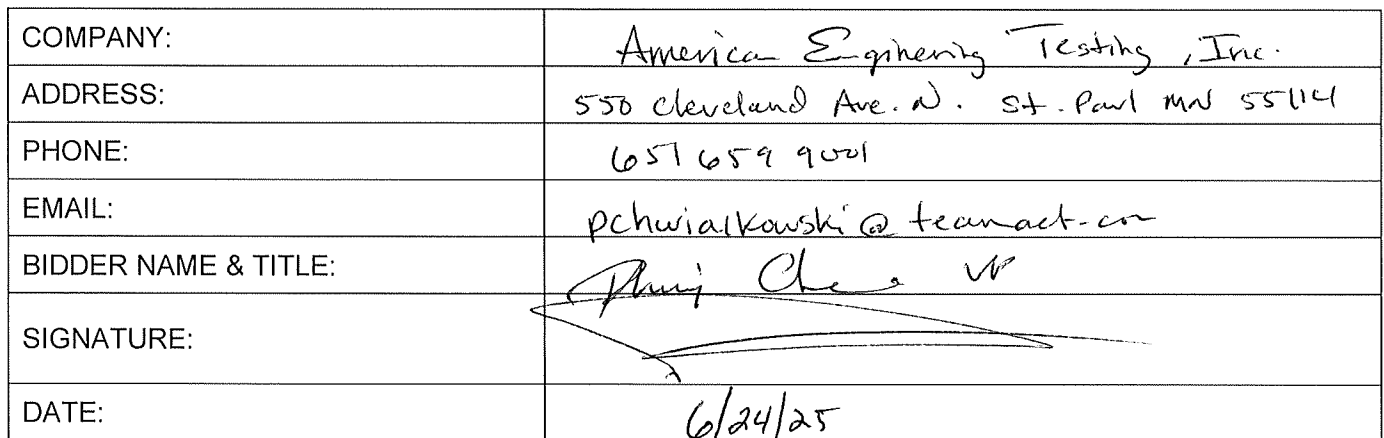 COMPANY: American Enginering Testing, Inc.
ADDRESS: 550 Cleveland Ave. N. St. Paul MN 55114
PHONE: 651 659 9001
EMAIL: pchwialkowski@teamaet.com
BIDDER NAME & TITLE: VP
SIGNATURE:
DATE: 6/24/25